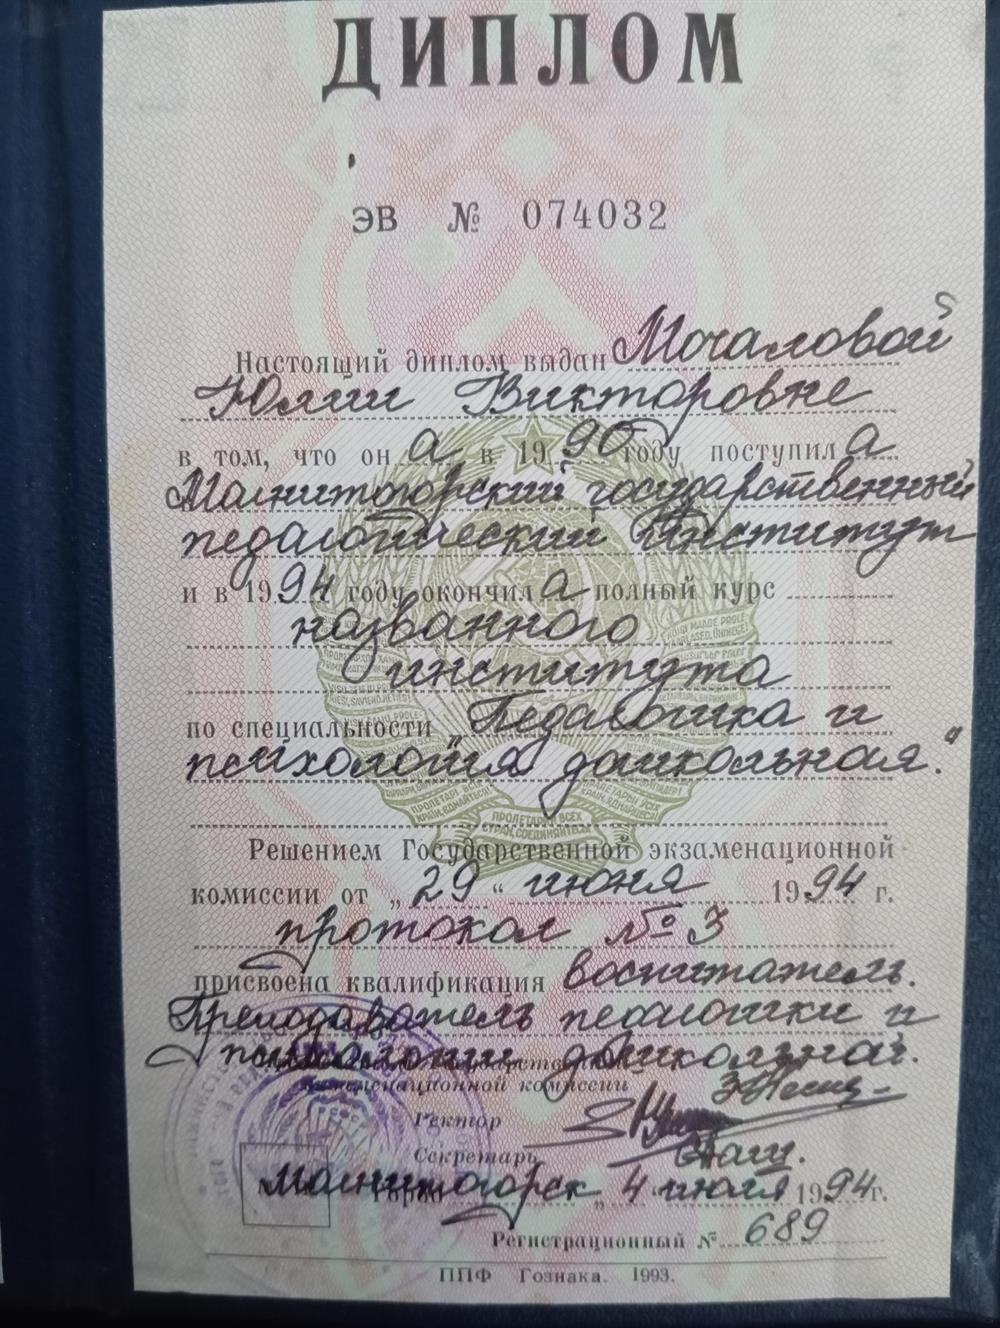 ДИПЛОМ
ЭВ № 074032
Настоящий диплом выдан Мочаловой
Юлии Викторовне
в том, что он а в 1990 году поступил а
Магнитогорский государственный
педагогический институт
и в 1994 году окончил а полный курс
названного
института
по специальности „Педагогика и
психология дошкольная."
Решением Государственной экзаменационной
комиссии от „29" июня 1994 г.
протокол № 3
присвоена квалификация воспитатель.
Преподаватель педагогики и
психологии дошкольной.
экзаменационной комиссии
Ректор
Секретарь
Город Магнитогорск „4" июля 1994 г.
Регистрационный № 689
ППФ Гознака. 1993.